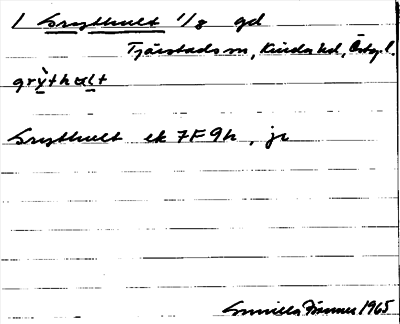 1 Grythult 1/8 gd
Tjärstads sn, Kinda hd, Östg.l.
grỳthɷlt
Grythult ek 7F 9h, jr
Gunilla 1965